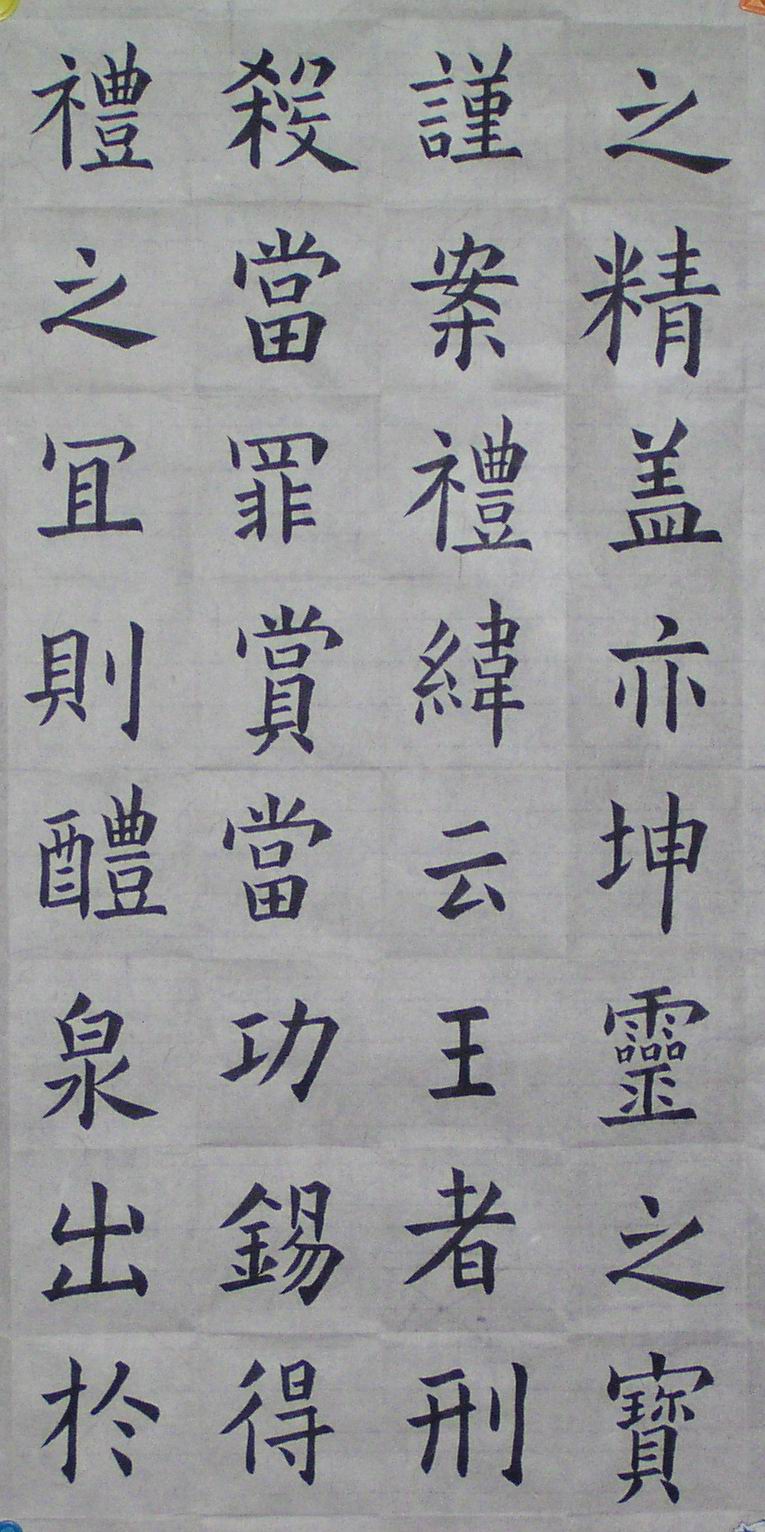 之精盖亦坤靈之寶
謹案禮緯云王者刑
殺當罪賞當功錫得
禮之冝則醴泉出於